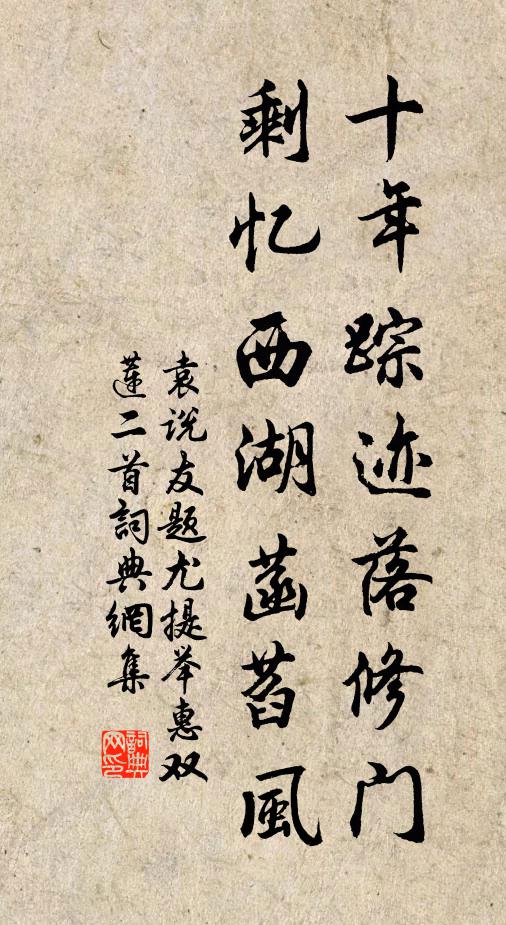 十年踪迹落修门
剩忆西湖菡萏風
袁说友题尤提举惠双
蓮二首詞典網集
詞典
网印